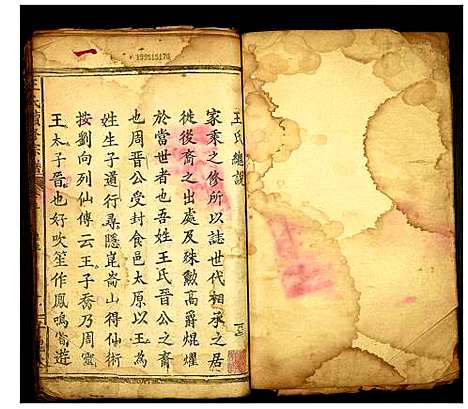 王氏總説
家乘之修所以誌世代相承之居
徙後裔之出處及殊勳高爵焜燿
於當世者也吾姓王氏晉公之裔
也周晉公受封食邑太原以王為
姓生子道行尋隱崑崙山得仙術
按劉向列仙傳云王子喬乃周靈
王太子晉也好吹笙作鳳鳴嘗遊
一